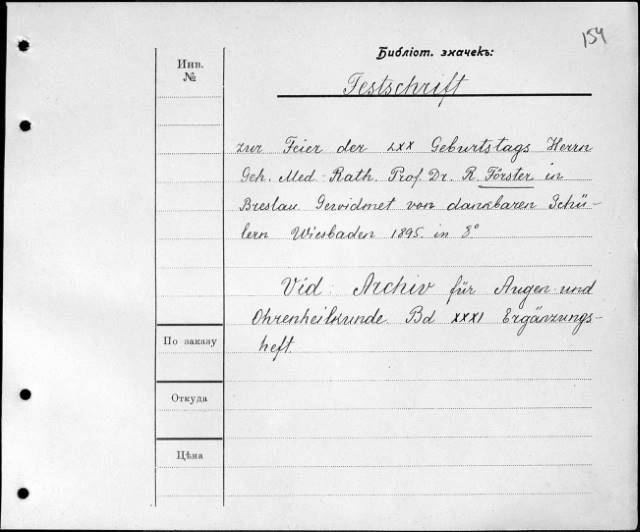 154
Библіот. значекъ:
Инв.
№
Festschrift
zur Feier der LXX Geburtstags Herrn
Geh. Med. Rath. Prof. Dr. R. Förster in
Breslau Gewidmet von dankbaren Schü-
lern Wiesbaden 1895. in 8°
Vid Archiv für Augen und
Ohrenheilkunde Bd XXXI Ergänzungs-
heft.
По заказу
Откуда
Цѣна